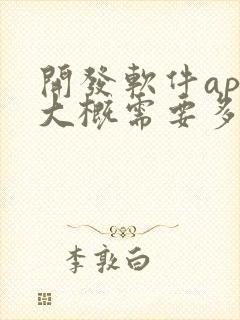 開發軟件ap
大概需要多
李敦白